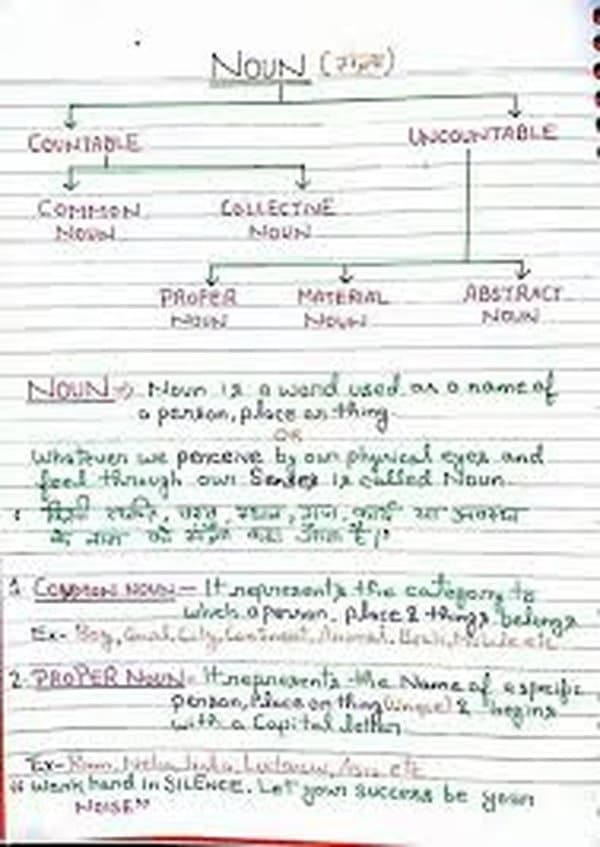 NOUN (संज्ञा)
COUNTABLE UNCOUNTABLE
COMMON NOUN COLLECTIVE NOUN
PROPER NOUN MATERIAL NOUN ABSTRACT NOUN
NOUN → Noun is a word used as a name of
a person, place or thing.
OR
Whatever we perceive by our physical eyes and
feel through our Senses is called Noun.
किसी व्यक्ति, वस्तु, स्थान, गुण, कार्य या अवस्था
के नाम को संज्ञा कहा जाता है।
1. COMMON NOUN - It represents the category to
which a person, place & things belongs
Ex- Boy, City, Continent, Animal, etc
2. PROPER NOUN - It represents the Name of a specific
person, Place or thing (unique) & begins
with a Capital letter
Ex- Ram, India, Lucknow, etc
" Work hard in SILENCE. Let your success be your
NOISE"